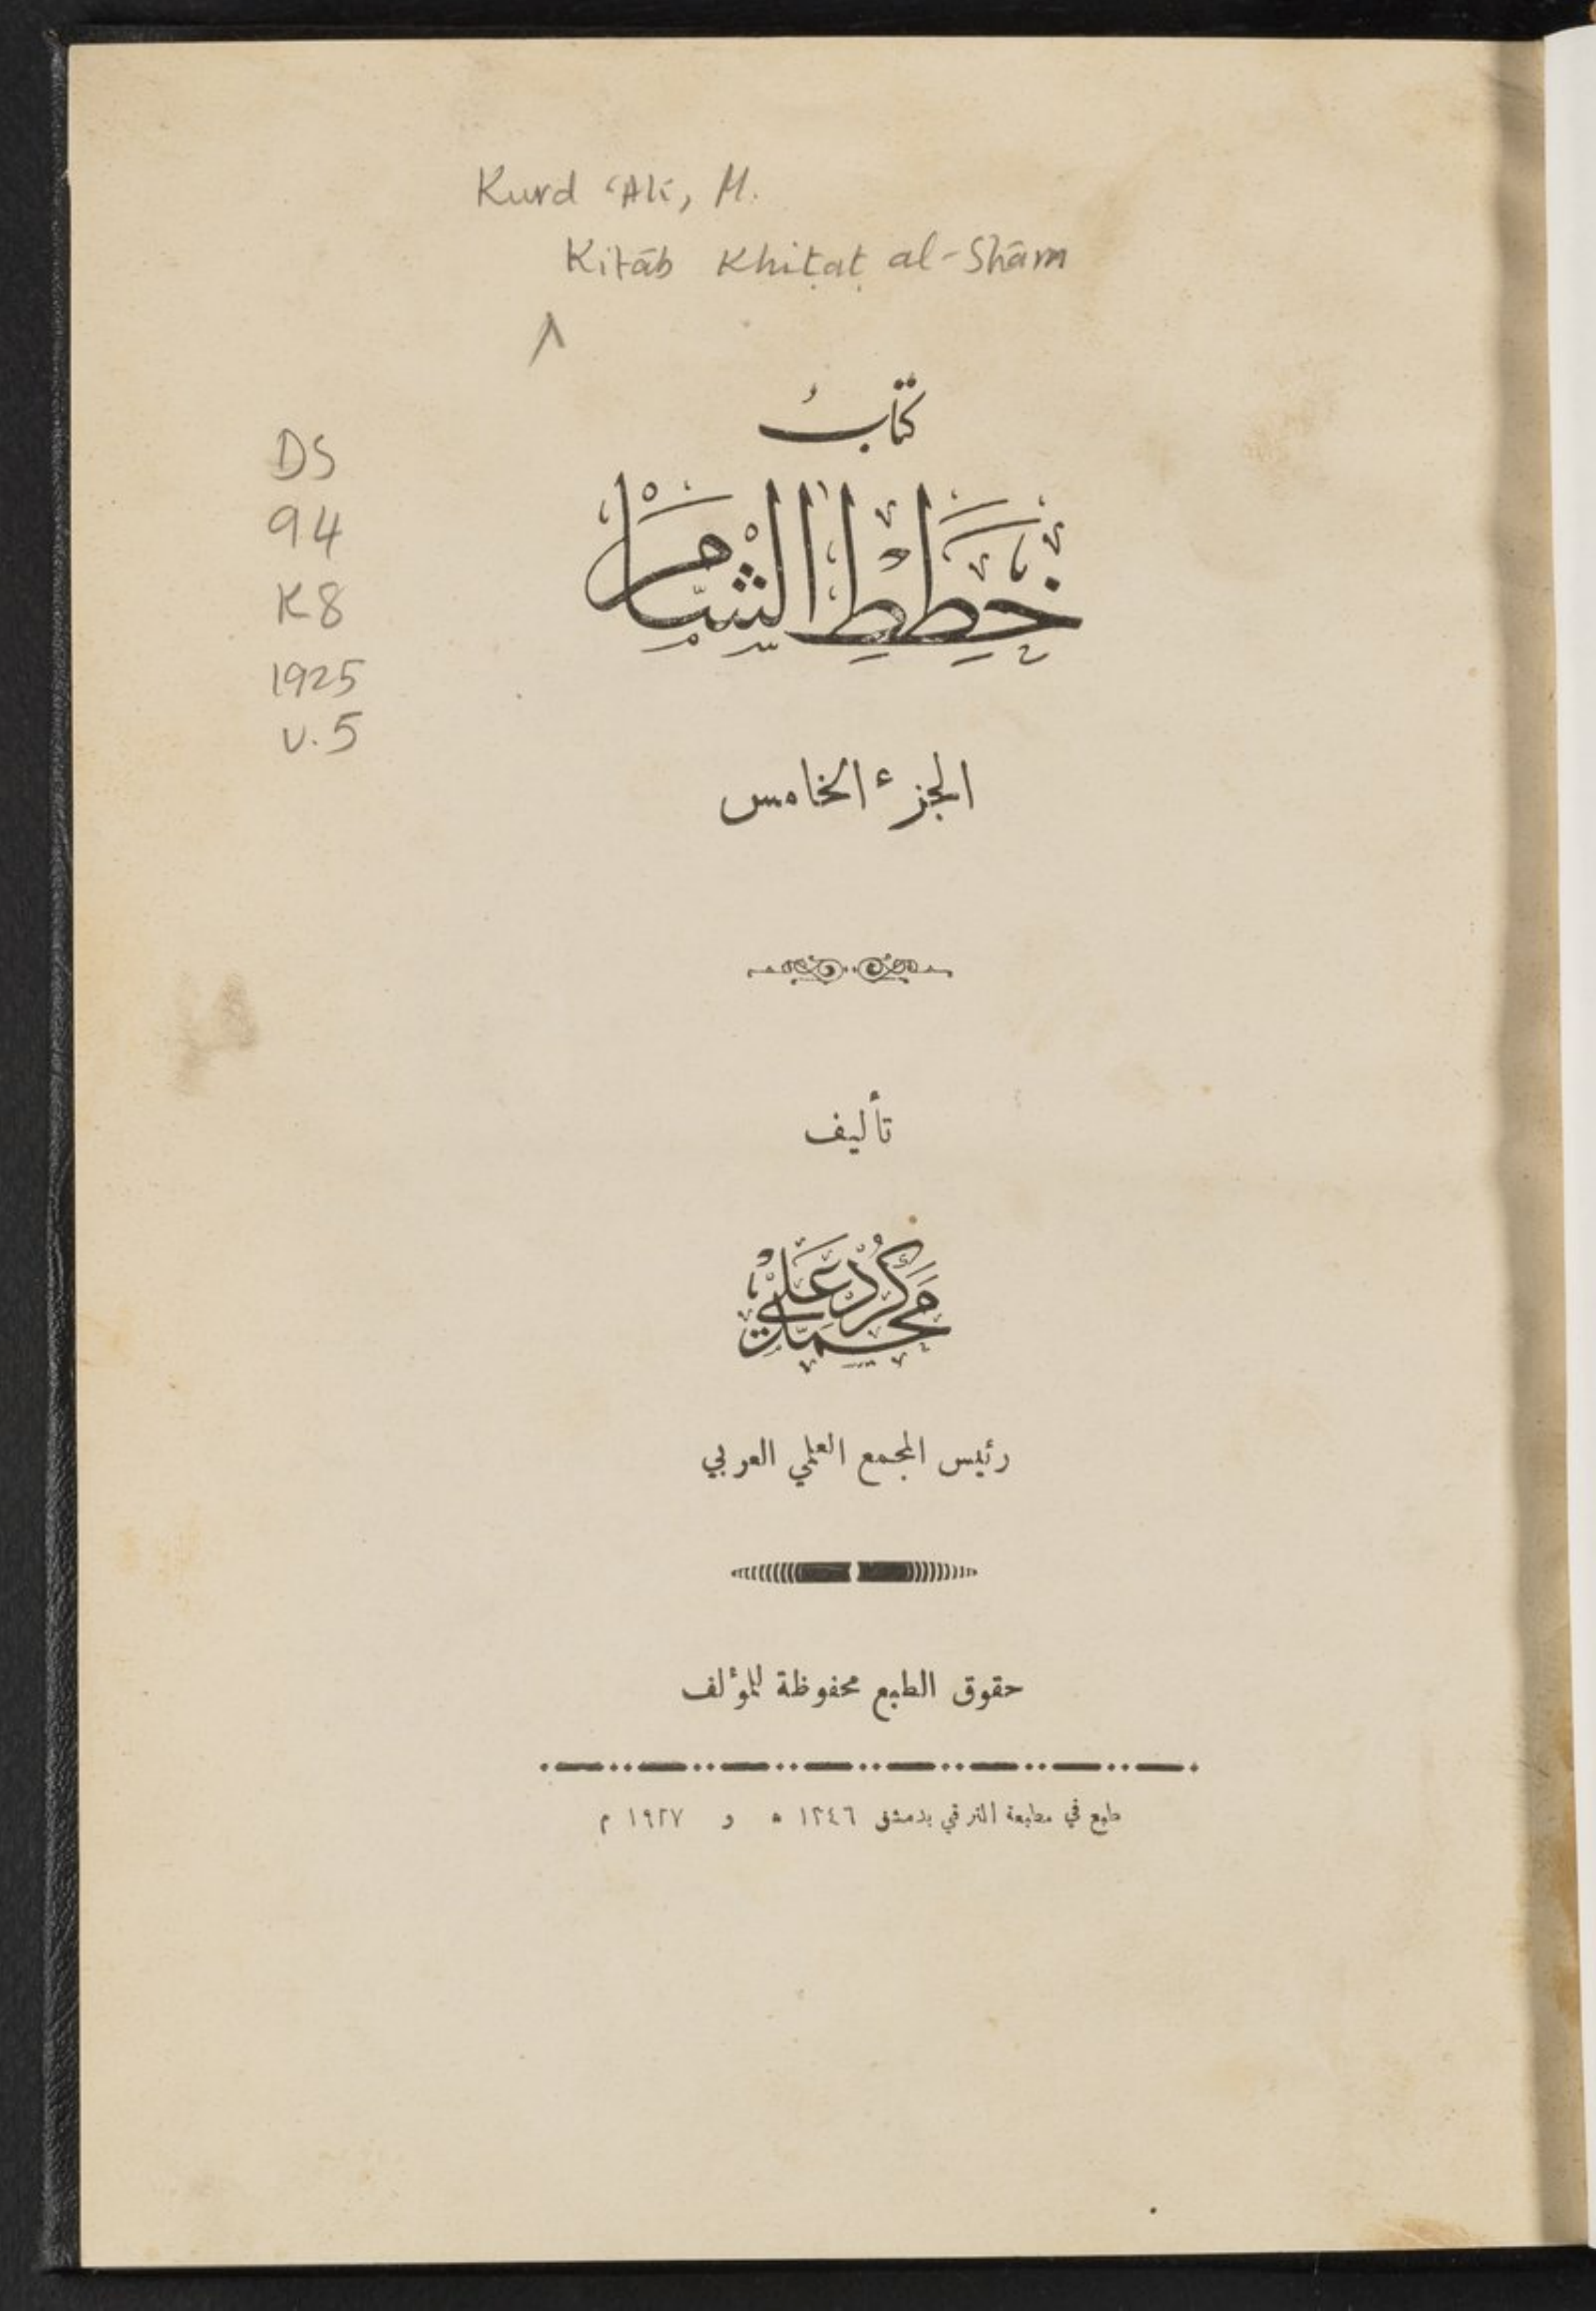 Kurd ʿAlī, M.
Kitāb Khiṭaṭ al-Shām
كتابُ
خِطَطِ الشَّام
DS
94
K8
1925
v.5
الجزء الخامس
تأليف
محمد كرد علي
رئيس المجمع العلمي العربي
حقوق الطبع محفوظة للمؤلف
طبع في مطبعة الترقي بدمشق ١٣٤٦ ه و ١٩٢٧ م